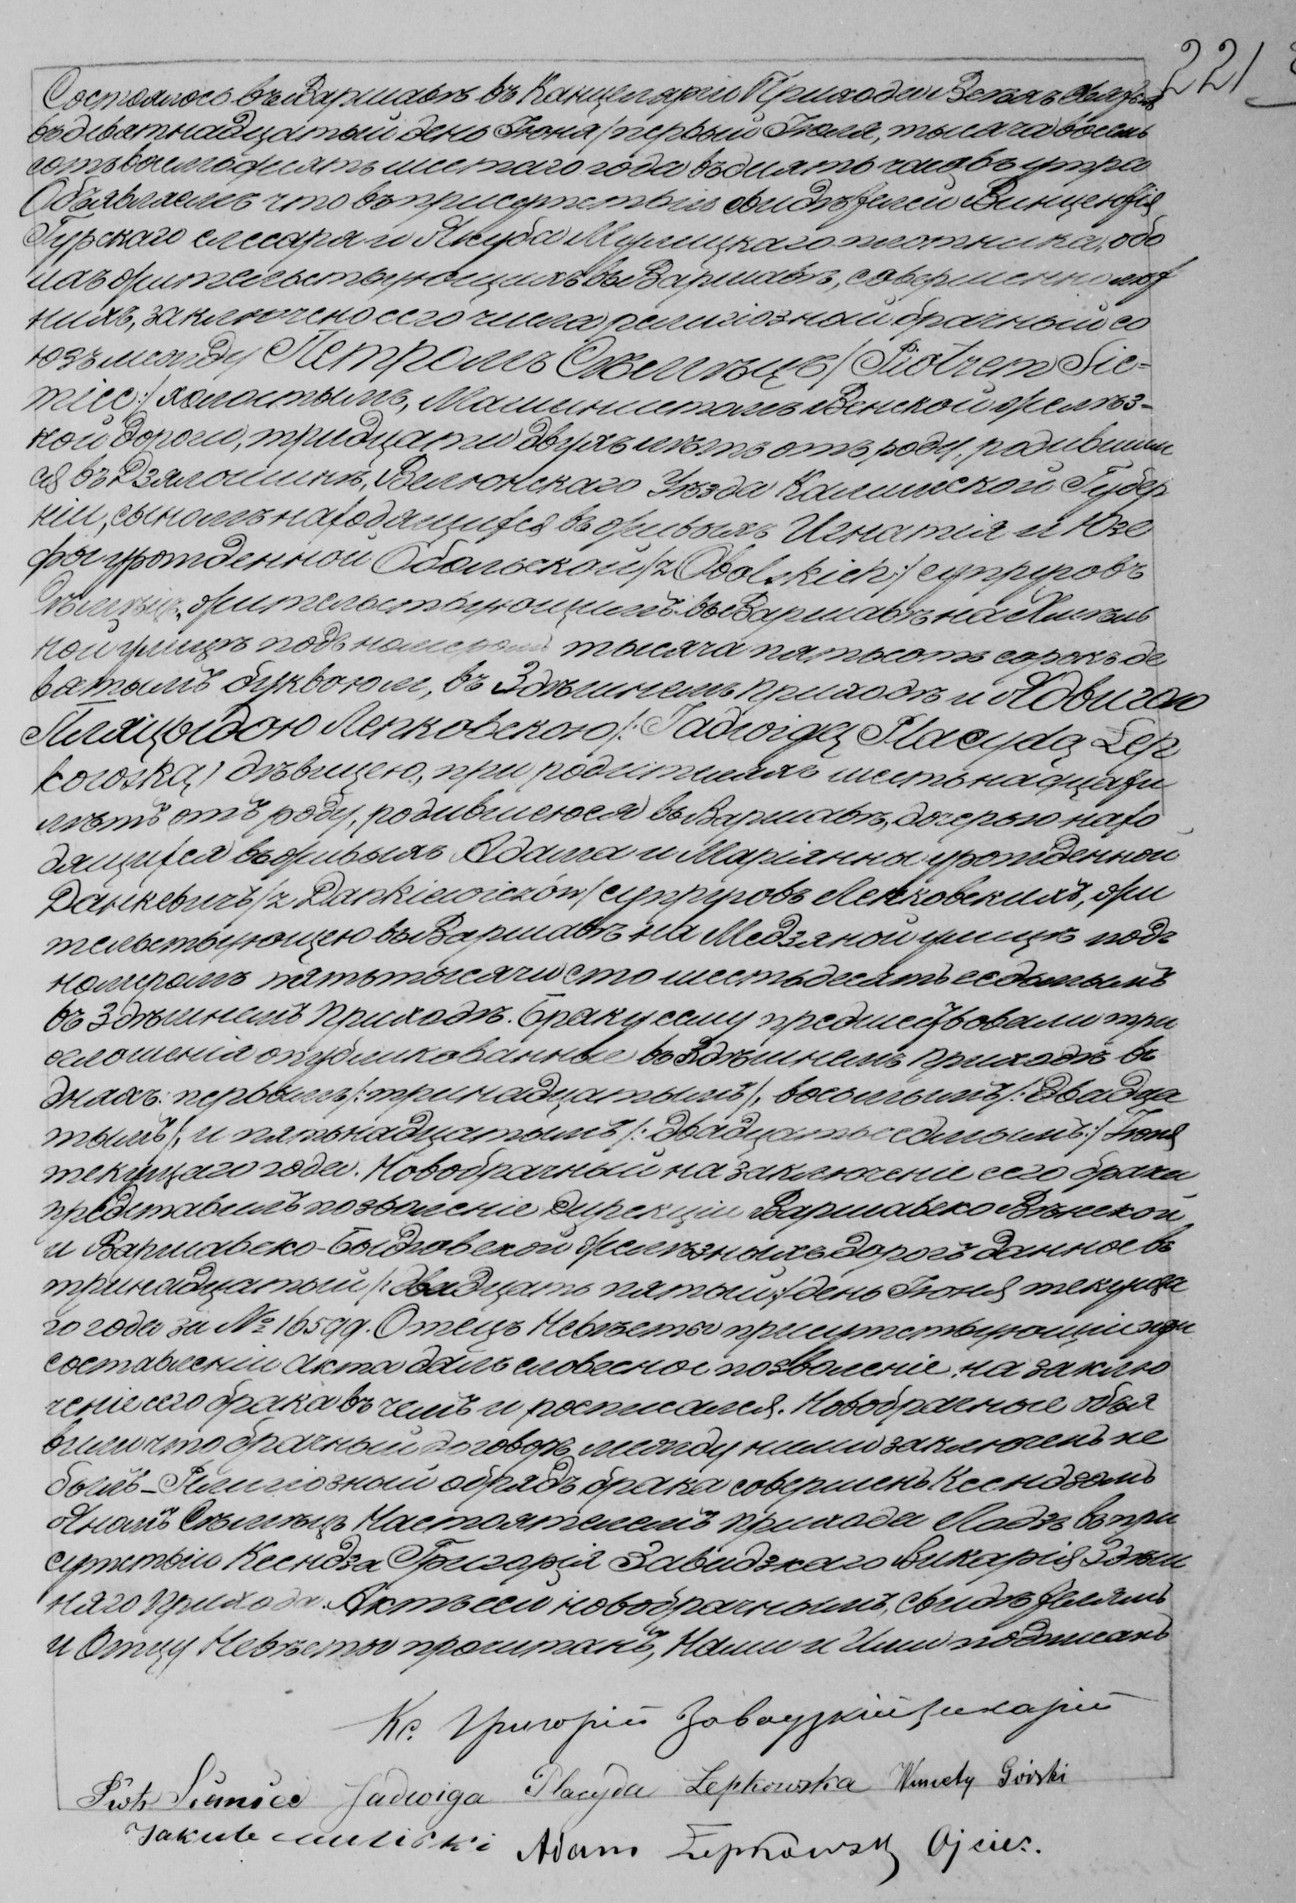 221
Состоялось въ Варшавѣ въ Канцеляріи Прихода Всѣхъ Святыхъ
въ девятнадцатый день Іюня /первый Іюля, тысяча восемь
сотъ восемьдесятъ шестаго года въ девять часовъ утра
Объявляемъ что въ присутствіи свидѣтелей Винцентія
Гурскаго слесаря и Якуба плотника, обо
ихъ жительствующихъ въ Варшавѣ, совершеннолѣт
нихъ, заключено сего числа религіозный брачный со
юзъ между Петромъ Сѣмѣцъ /Piotrem Sie-
miec:/ холостымъ, Машинистомъ Венской желѣз-
ной дороги, тридцати двухъ лѣтъ отъ роду, родившим
ся въ Дзялошинѣ, Велюнскаго Уѣзда Калишской Губер
ніи, сыномъ находящихся въ живыхъ Игнатія и Юзе
фы урожденной Обольской /z Obolskich:/ супруговъ
Сѣмѣцъ, жительствующимъ въ Варшавѣ на Хмѣль
ной улицѣ подъ номеромъ тысяча пятьсотъ сорокъ де
вятымъ буквою м, въ Здѣшнемъ приходѣ и Ядвигою
Пляцыдою Лепковскою /: Jadwigą Placydą Łep
kowską/ дѣвицею, при родителяхъ шестьнадцати
лѣтъ отъ роду, родившеюся въ Варшавѣ, дочерью нахо
дящихся въ живыхъ Адама и Маріянны урожденной
Данкевичъ /z Dankiewiczów/ супруговъ Лепковскихъ, жи
тельствующею въ Варшавѣ на Медзяной улицѣ подъ
номеромъ пять тысячи сто шестьдесятъ седьмымъ
въ Здѣшнемъ приходѣ. Браку сему предшествовали три
оглошенія опубликованные въ Здѣшнемъ приходѣ въ
дняхъ: первымъ /:тринадцатымъ/, восьмымъ /: двадца
тымъ/, и пятьнадцатымъ /: двадцать седьмымъ:/ Іюня
текущаго года. Новобрачный на заключеніе сего брака
представилъ позволеніе Дирекціи Варшавско Вѣнской
и Варшавско-Быдговской желѣзныхъ дорогъ данное въ
тринадцатый /: двадцать пятый:/ день Іюня текуща
го года за № 16599. Отецъ Невѣсты присутствующій при
составленіи акта далъ словесное позволеніе на заклю
ченіе сего брака въ чемъ и росписался. Новобрачные объя
вили что брачный договоръ между ними заключенъ не
былъ – Религіозный обрядъ брака совершенъ Ксендзомъ
Яномъ Сѣмѣцъ Настоятелемъ прихода въ при
сутствіи Ксендза Григорія Завидзкаго Викарія Здѣш
няго прихода. Актъ сей новобрачнымъ, свидѣтелямъ
и Отцу Невѣсты прочитанъ, Нами и Ими подписанъ
Кс. Григорій Викарій
Piotr Siemiec Jadwiga Placyda Lepkowska Wincenty Górski
Jakub Adam Łepkowski Ojciec.